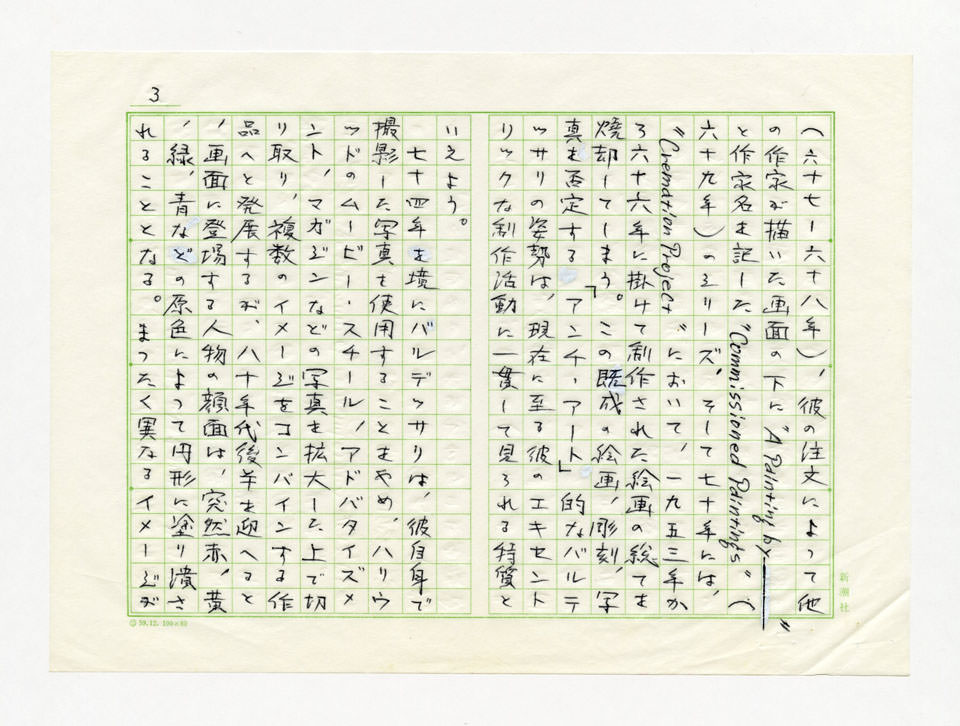 3
(六十七ー六十八年)、彼の注文によって他
の作家が描いた画面の下に "A Painting by ___"
と作家名を記した "Commissioned Paintings" (
六十九年)のシリーズ、そして七十年には、
"Cremation Project" において、一九五三年か
ら六十六年に掛けて制作された絵画の総てを
焼却してしまう。この既成の絵画、彫刻、写
真を否定する「アンチ・アート」的なバルデ
ッサリの姿勢は、現在に至る彼のエキセント
リックな制作活動に一貫して見られる特質と
いえよう。
七十四年を境にバルデッサリは、彼自身で
撮影した写真を使用することをやめ、ハリウ
ッドのムービー・スチール、アドバタイズメ
ント、マガジンなどの写真を拡大した上で切
り取り、複数のイメージをコンバインする作
品へと発展するが、八十年代後半を迎へると
、画面に登場する人物の顔面は、突然赤、黄
、緑、青などの原色によって円形に塗り潰さ
れることとなる。まったく異なるイメージが
新潮社
59.12. 100×80